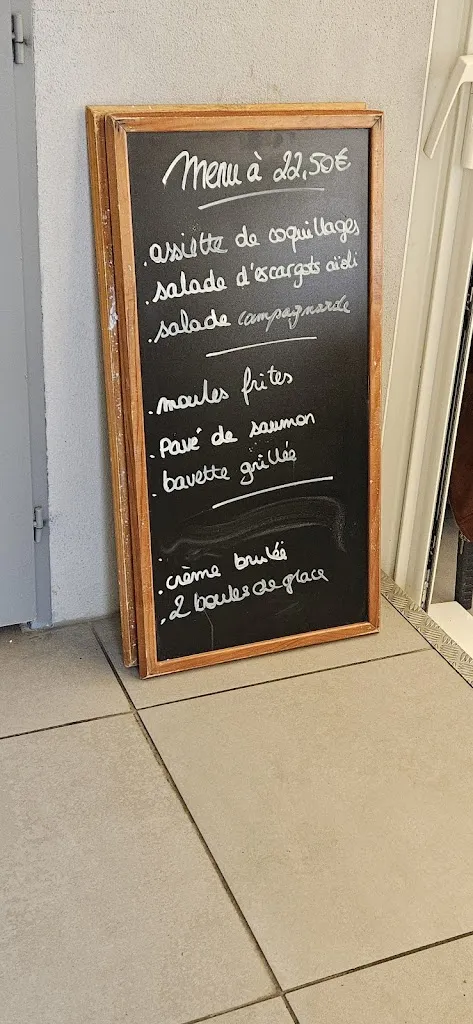 Menu à 22,50€
. assiette de coquillages
. salade d'escargots aïoli
. salade campagnarde
. moules frites
. Pavé de saumon
. bavette grillée
.
. crème brulée
. 2 boules de glace